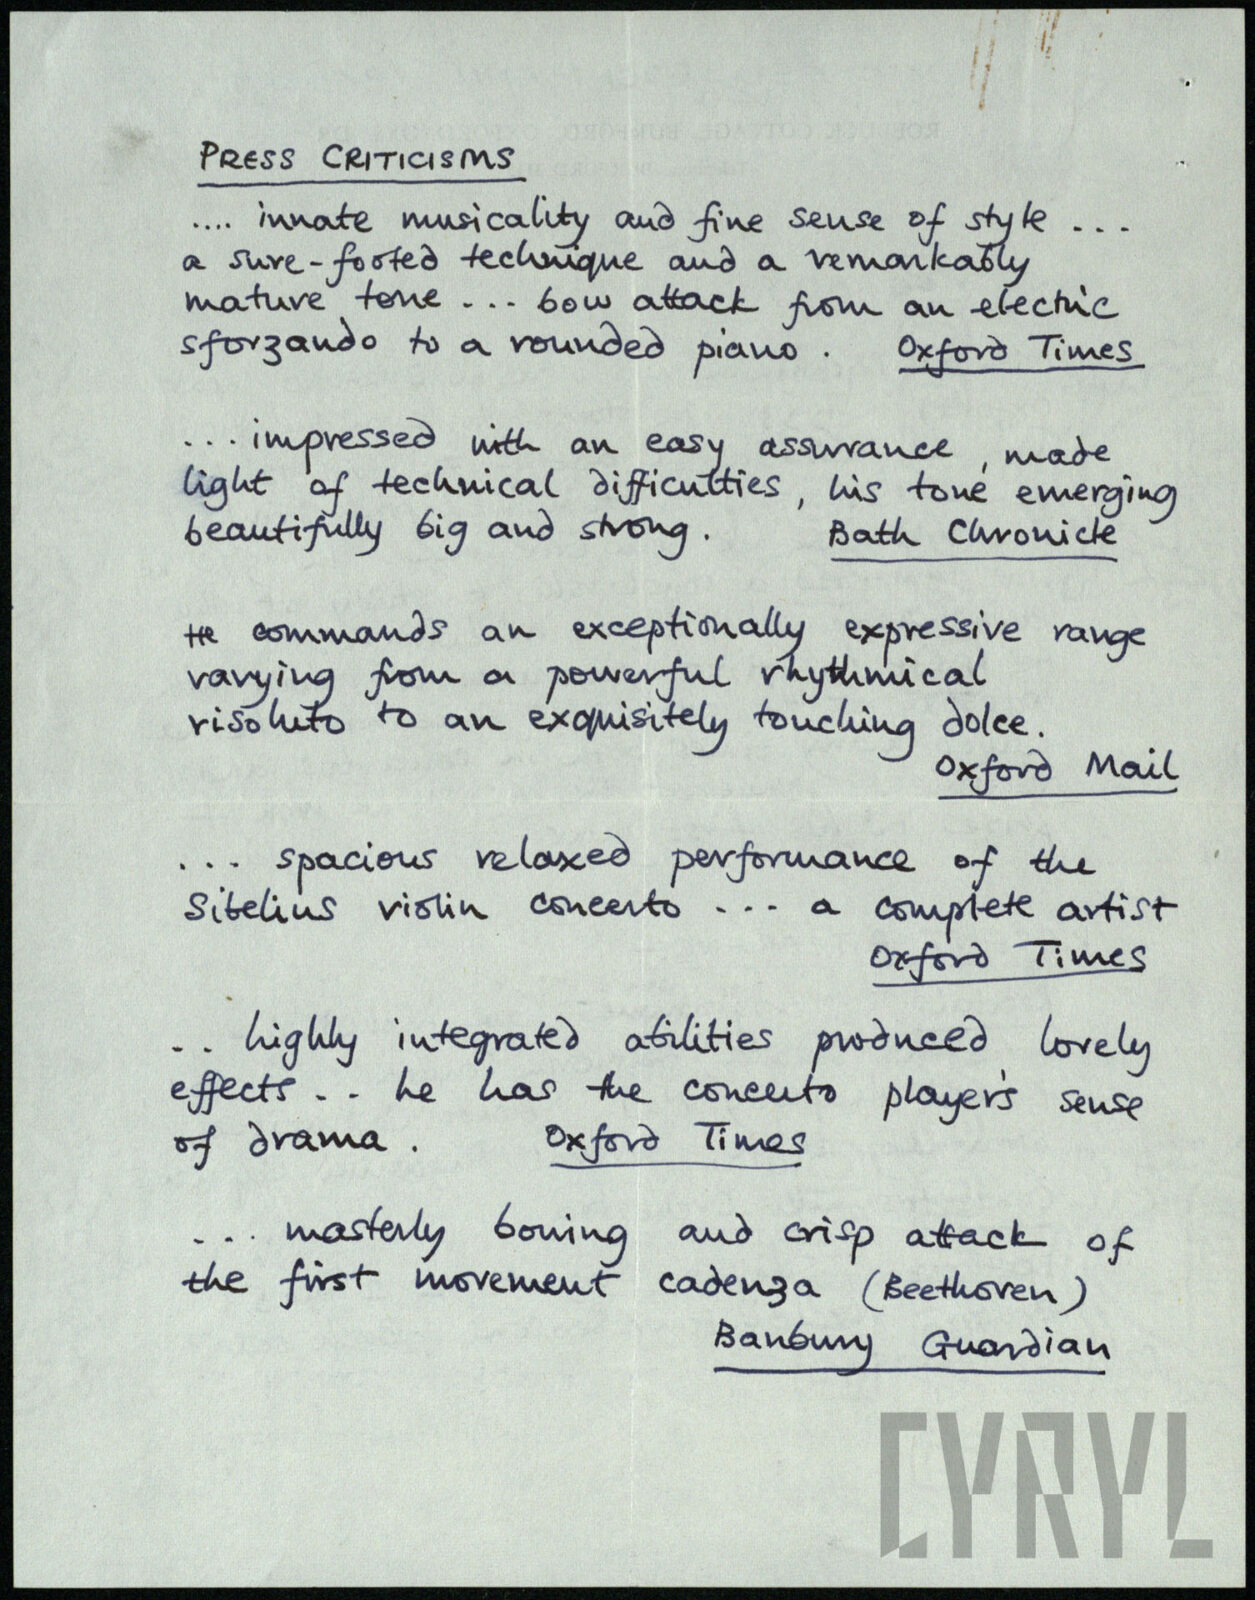 PRESS CRITICISMS
.... innate musicality and fine sense of style ...
a sure-footed technique and a remarkably
mature tone ... bow attack from an electric
sforzando to a rounded piano . Oxford Times
... impressed with an easy assurance , made
light of technical difficulties , his tone emerging
beautifully big and strong . Bath Chronicle
He commands an exceptionally expressive range
varying from a powerful rhythmical
risoluto to an exquisitely touching dolce.
Oxford Mail
... spacious relaxed performance of the
Sibelius violin concerto ... a complete artist
Oxford Times
.. highly integrated abilities produced lovely
effects .. he has the concerto player's sense
of drama . Oxford Times
... masterly bowing and crisp attack of
the first movement cadenza (Beethoven)
Banbury Guardian
CYRYL